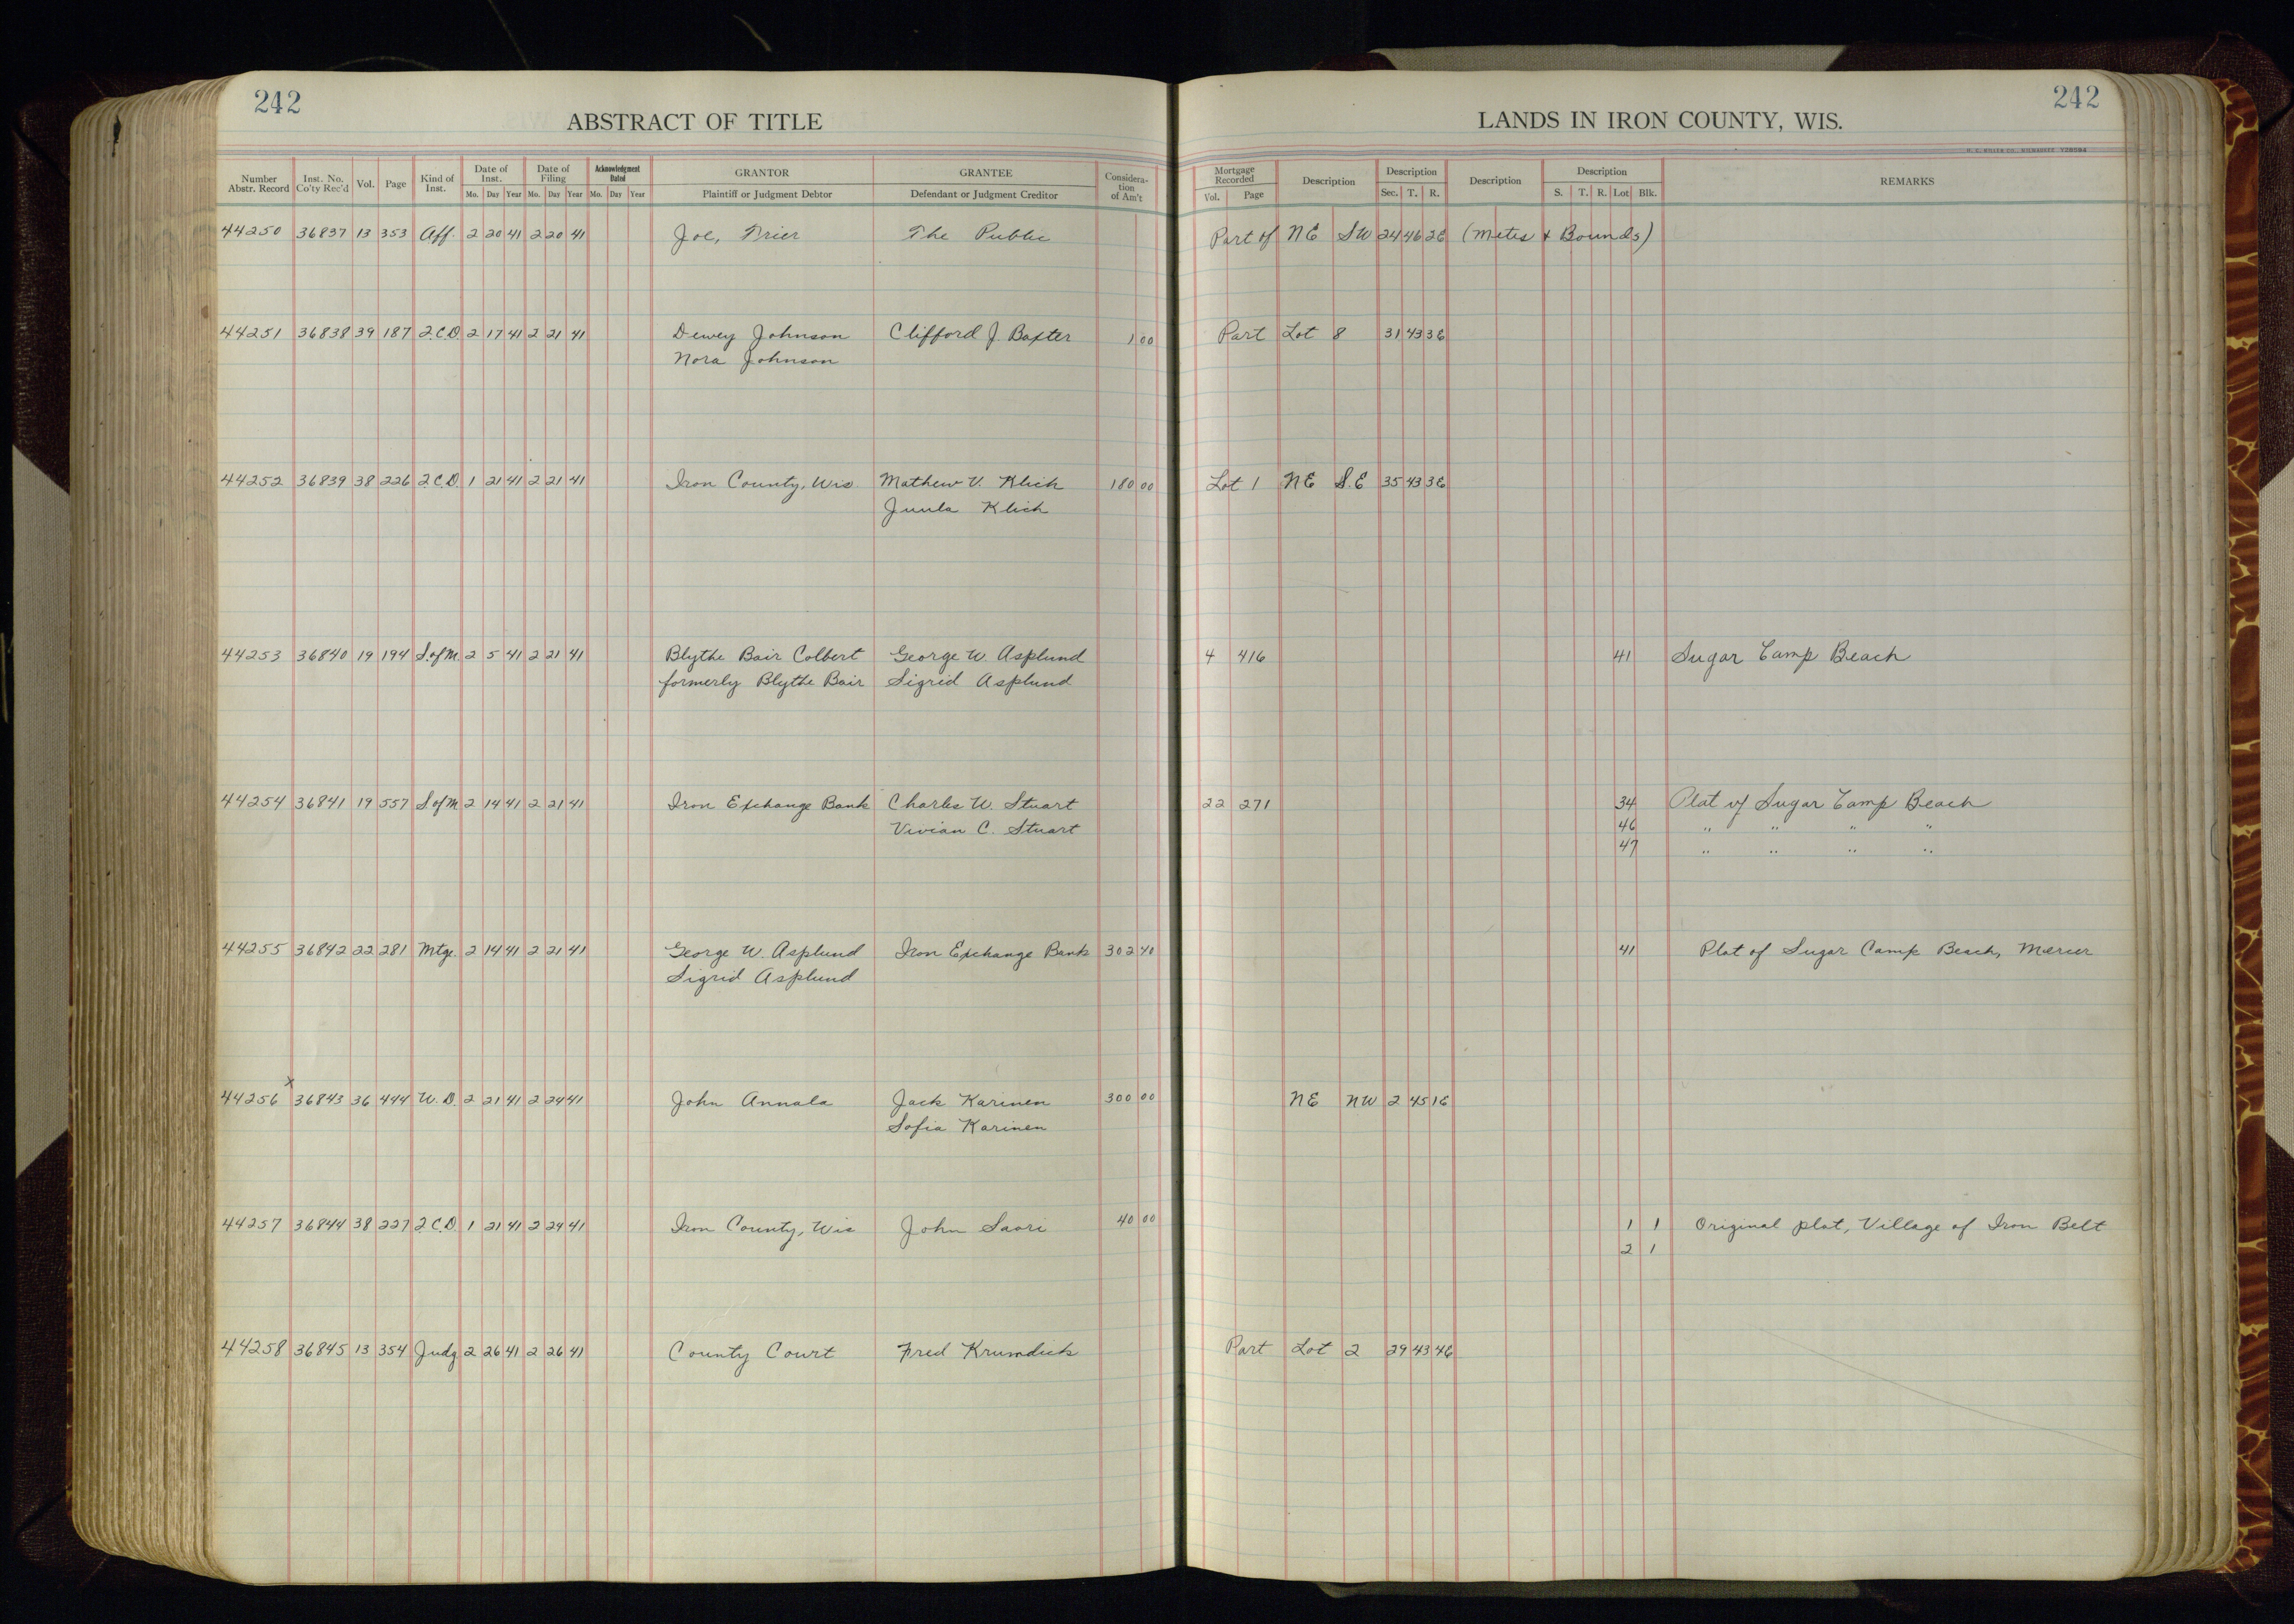 242
ABSTRACT OF TITLE
Number Abstr. Record Inst. No. Co'ty Rec'd Vol. Page Kind of Inst. Date of Inst. Mo. Day Year Date of Filing Mo. Day Year Acknowledgment Dated Mo. Day Year GRANTOR Plaintiff or Judgment Debtor GRANTEE Defendant or Judgment Creditor Consideration of Am't
44250 36837 13 353 Aff. 2 20 41 2 20 41 Joe, Trier The Public
44251 36838 39 187 2.C.D. 2 17 41 2 21 41 Dewey Johnson Clifford J. Baxter 1 00
Nora Johnson
44252 36839 38 226 2.C.D. 1 21 41 2 21 41 Iron County, Wis. Mathew V. Klich 180 00
Juula Klich
44253 36840 19 194 S.of M. 2 5 41 2 21 41 Blythe Bair Colbert George W. Asplund
formerly Blythe Bair Sigrid Asplund
44254 36841 19 557 S of M 2 14 41 2 21 41 Iron Exchange Bank Charles W. Stuart
Vivian C. Stuart
44255 36842 22 281 Mtge. 2 14 41 2 21 41 George W. Asplund Iron Exchange Bank 302 40
Sigrid Asplund
x
44256 36843 36 444 W.D. 2 21 41 2 24 41 John Annala Jack Karinen 300 00
Sofia Karinen
44257 36844 38 227 2 C.D. 1 21 41 2 24 41 Iron County, Wis John Saari 40 00
44258 36845 13 354 Judg 2 26 41 2 26 41 County Court Fred Krumdick
242
LANDS IN IRON COUNTY, WIS.
Mortgage Recorded Vol. Page Description Description Sec. T. R. Description Description S. T. R. Lot Blk. REMARKS
Part of NE SW 24 46 2E (Metes & Bounds)
Part Lot 8 31 43 3E
Lot 1 NE S.E 35 43 3E
4 416 41 Sugar Camp Beach
22 271 34 Plat of Sugar Camp Beach
46 " " " "
47 " " " "
41 Plat of Sugar Camp Beach, Mercer
NE NW 2 45 1E
1 1 Original plat, Village of Iron Belt
2 1
Part Lot 2 29 43 4E